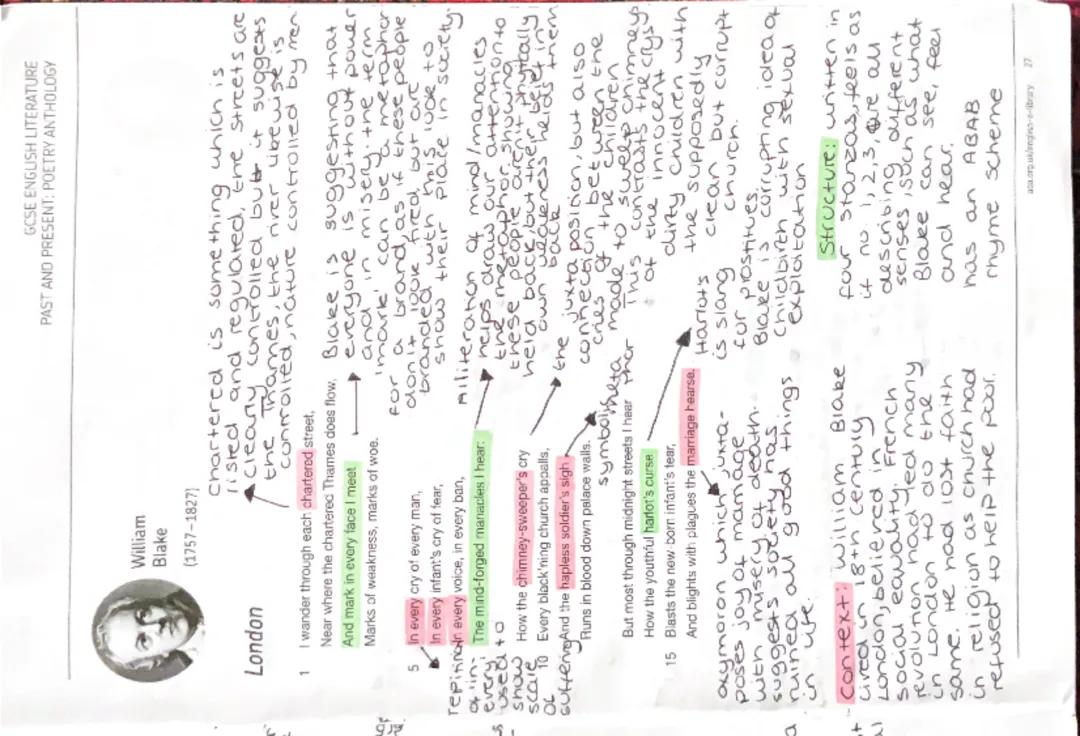 GCSE ENGLISH LITERATURE
PAST AND PRESENT: POETRY ANTHOLOGY
William
Blake
(1757–1827)
London
chartered is something which is
listed and regulated, the streets are
cleary controlled but it suggests
the Thames, the river likewise is
controlled, nature controlled by men
1 I wander through each chartered street,
Near where the chartered Thames does flow,
And mark in every face I meet
Marks of weakness, marks of woe.
Blake is suggesting that
everyone is without power
and in misery. the term
'mark' can be a metaphor
for a brand as if these people
don't look tired, but are
branded with this look to
show their place in society.
5 In every cry of every man,
In every infant's cry of fear,
In every voice, in every ban,
The mind-forged manacles I hear:
repitition
of 'in
every'
is used to
show
scale
of
suffering
Alliteration of mind/manacles
helps draw our attention onto
the metaphor, showing
these people aren't physically
held back, but their belief in
own weakness holds them
back
How the chimney-sweeper's cry
10 Every black'ning church appalls,
And the hapless soldier's sigh
Runs in blood down palace walls.
the juxtaposition, but also
connection between the
cries of the children
made to sweep chimneys
This contrasts the crys
of the innocent
dirty children with
the supposedly
clean but corrupt
church.
But most through midnight streets I hear
How the youthful harlot's curse
15 Blasts the new-born infant's tear,
And blights with plagues the marriage hearse.
Harlots
is slang
for prostitutes.
Blake is corrupting idea of
childbirth with sexual
exploitation
oxymoron which juxta-
poses joy of marriage
with misery of death.
suggests society has
ruined all good things
in life.
Context: William Blake
lived in 18th century
London, believed in
social equality. French
revolution had led many
in London to do the
same. He had lost faith
in religion as church had
refused to help the poor.
Structure: written in
four stanzas, feels as
if no. 1, 2, 3, are all
describing different
senses, such as what
Blake can see, feel
and hear.
has an ABAB
rhyme scheme
27